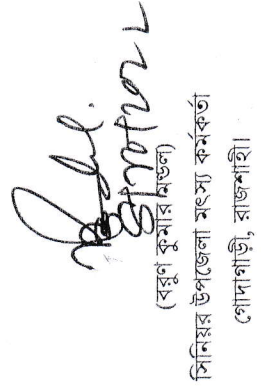 (বরুণ কুমার মন্ডল)
সিনিয়র উপজেলা মৎস্য কর্মকর্তা
গোদাগাড়ী, রাজশাহী।